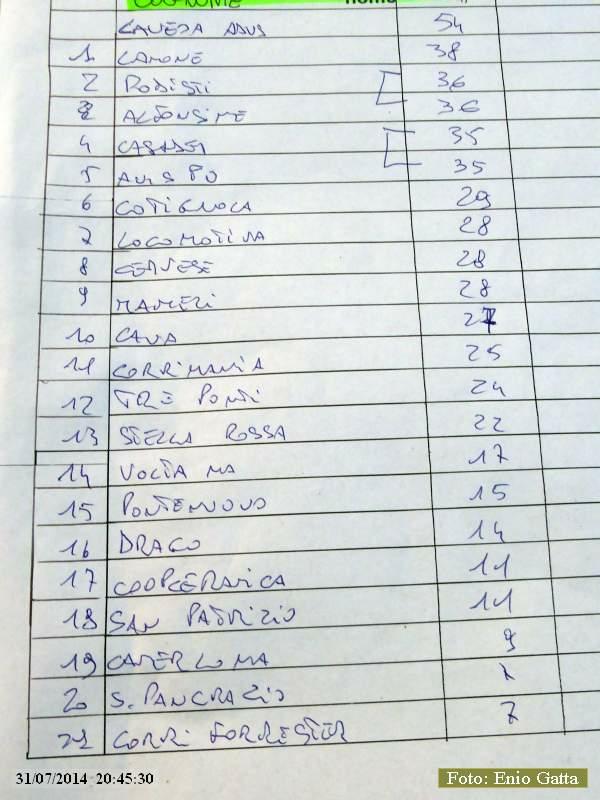 COGNOME nome
CAVEJA ADVS 54
1 LAMONE 38
2 PODISTI 36
3 ALFONSINE 36
4 CASADEI 35
5 AVIS PO 35
6 COTIGNOLA 29
7 LOCOMOTIVA 28
8 CERVESE 28
9 MAMELI 28
10 CAVA 27
11 CORRIMANIA 25
12 TRE PONTI 24
13 STELLA ROSSA 22
14 VOLTANA 17
15 PONTENUOVO 15
16 DRAGO 14
17 COOPCERAMICA 11
18 SAN PATRIZIO 11
19 CATERLUMA 9
20 S. PANCRAZIO 7
21 CORRI FORRESTER 7
31/07/2014 20:45:30
Foto: Enio Gatta